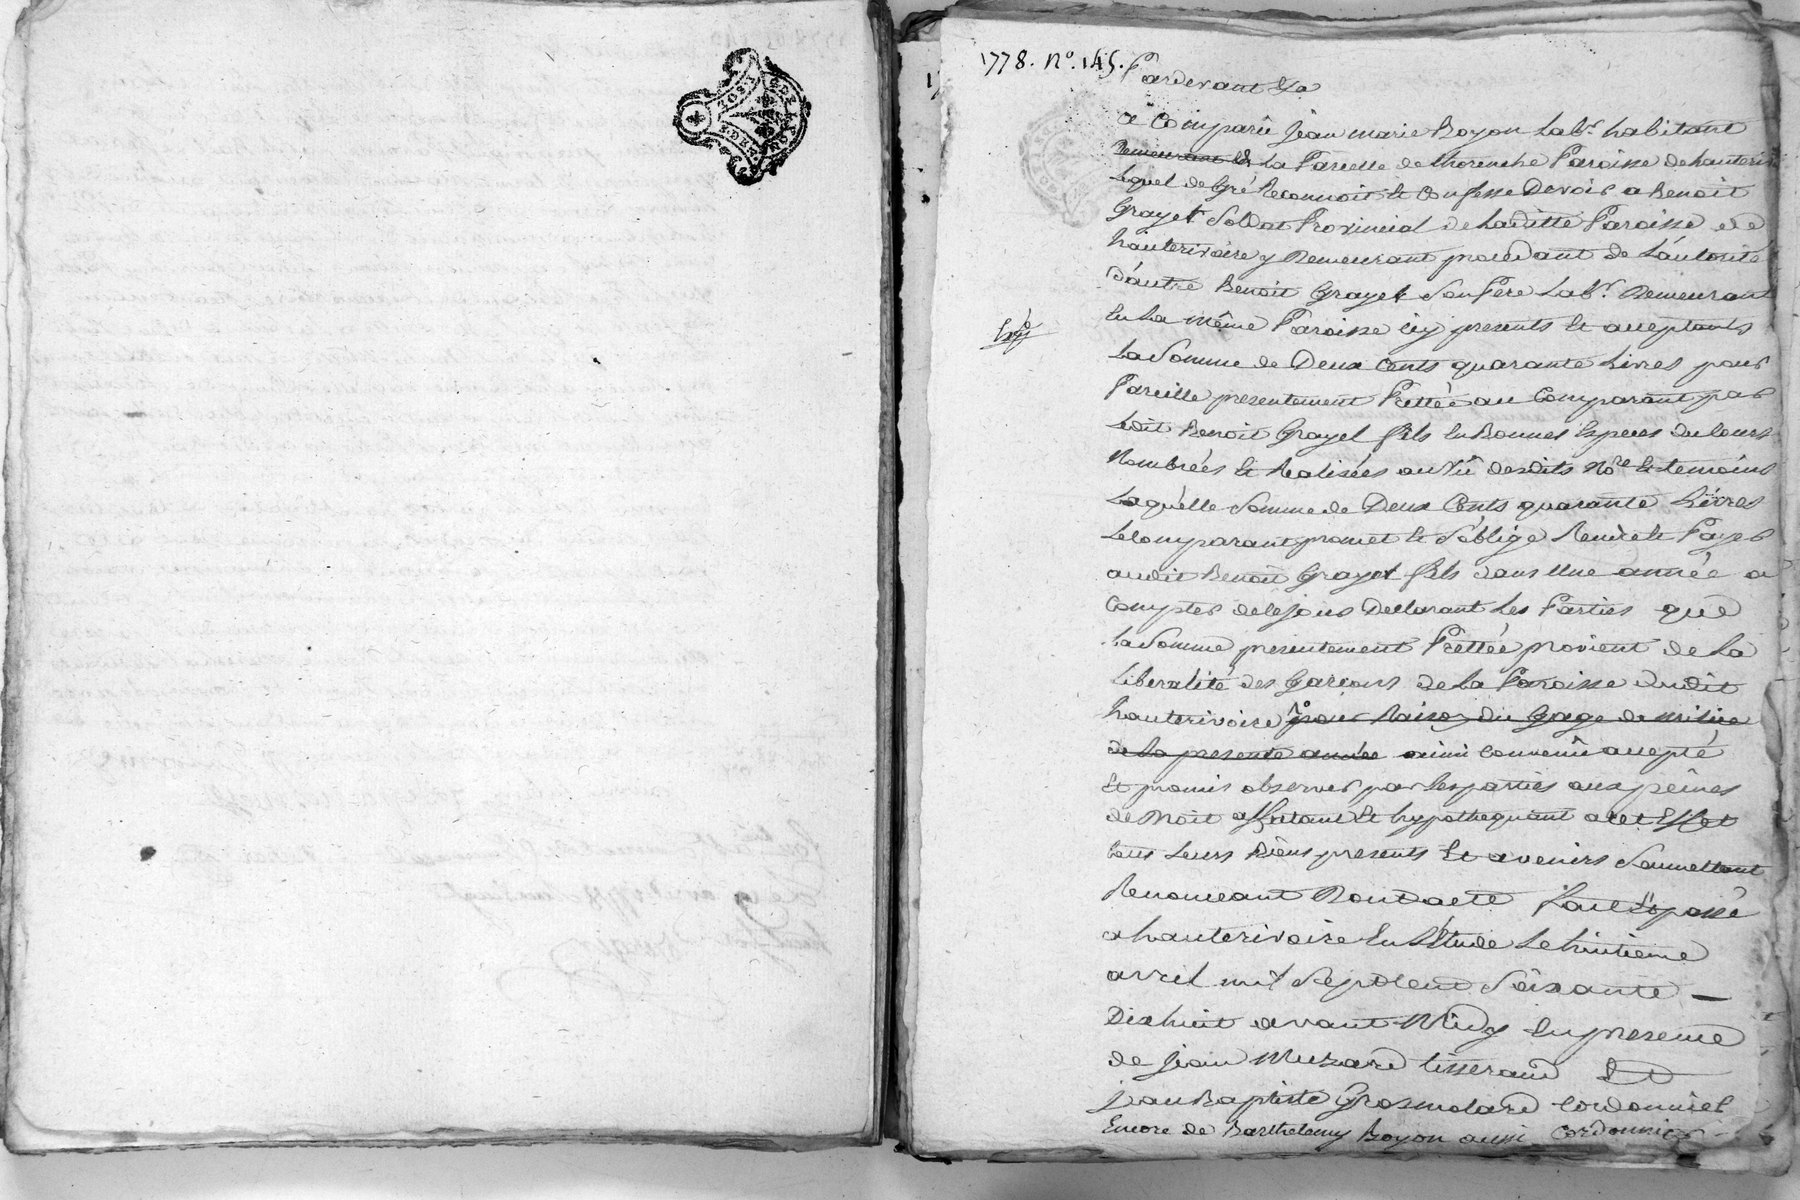 1778. N°. 145.
Pardevant &a
a Comparû Jean marie Boyon Labr. habitant
Demeurant la La Parcelle de thorenche Paroisse de hauteri
Lequel de Gré Reconnoit et Confesse Devoir a Benoit
Grayet Soldat Provincial de Laditte Paroisse de
hauterivoire y Demeurant procedant de L'autorité
d'autre Benoit Grayet Son Pere Labr. Demeurant
En La même Paroisse icy presents et acceptants
Expé
La Somme de Deux Cents quarante Livres pour
Pareille presentement Prettée au Comparant par
Ledit Benoit Grayet fils En Bonnes Especes du Cours
Nombrées et Realisées au Vû desdits Nore et temoins
Laquelle Somme de Deux Cents quarante Livres
Le Comparant promet et S'oblige Rendre et Payer
audit Benoit Grayet fils dans Une année a
Compter de Ce jour Declarant Les Parties que
La Somme presentement Prettée provient de La
Liberalité des Garçons de La Paroisse dudit
hauterivoire pour Raison du Gage de Milice
de La presente année ainsi Convenu accepté
Et promis observer par Les parties aux peines
de Droit affectant et hypothequant a cet Effet
tous Leurs Biens presents et avenirs Soumettant
Renonceant Dont acte Fait et passé
a hauterivoire En L'Étude Le huitieme
avril mil Sept Cent Soixante —
Dix huit avant Midy En presence
de Jean Muzard tisserand Et
jean Baptiste Grosmolard Cordonnier
Encore de Barthelemy Boyon aussi Cordonnier